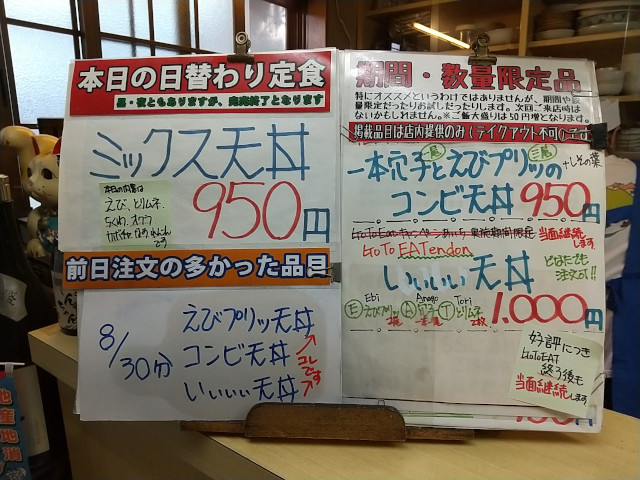 本日の日替わり定食
昼・夜ともありますが、完売終了となります
ミックス天丼
本日の内容は
えび、とりムネ
ちくわ、オクラ
カボチャ
です
950円
前日注文の多かった品目
8/30分
えびプリッ天丼
コンビ天丼
いいぃぃ天丼
コレです
期間・数量限定品
特にオススメというわけではありませんが、期間や数
量限定だったりお試しだったりします。次回ご来店時は
ないかもしれません。※ご飯大盛りは50円増となります。
掲載品目は店内提供のみ(テイクアウト不可)です
一本穴子とえびプリッの
一尾
三尾
+しその葉
コンビ天丼 950円
GoToEatキャンペーンあいち 実施期間限定
当面継続します
GoTo EATendon
どなたでも
注文可!!
いいぃぃ天丼
Ebi
Anago
Tori
Ⓔえびプリッ Ⓐ穴子 Ⓣとりムネ
2枚
1,000円
好評につき
GoToEAT
終了後も
当面継続します
地産地消